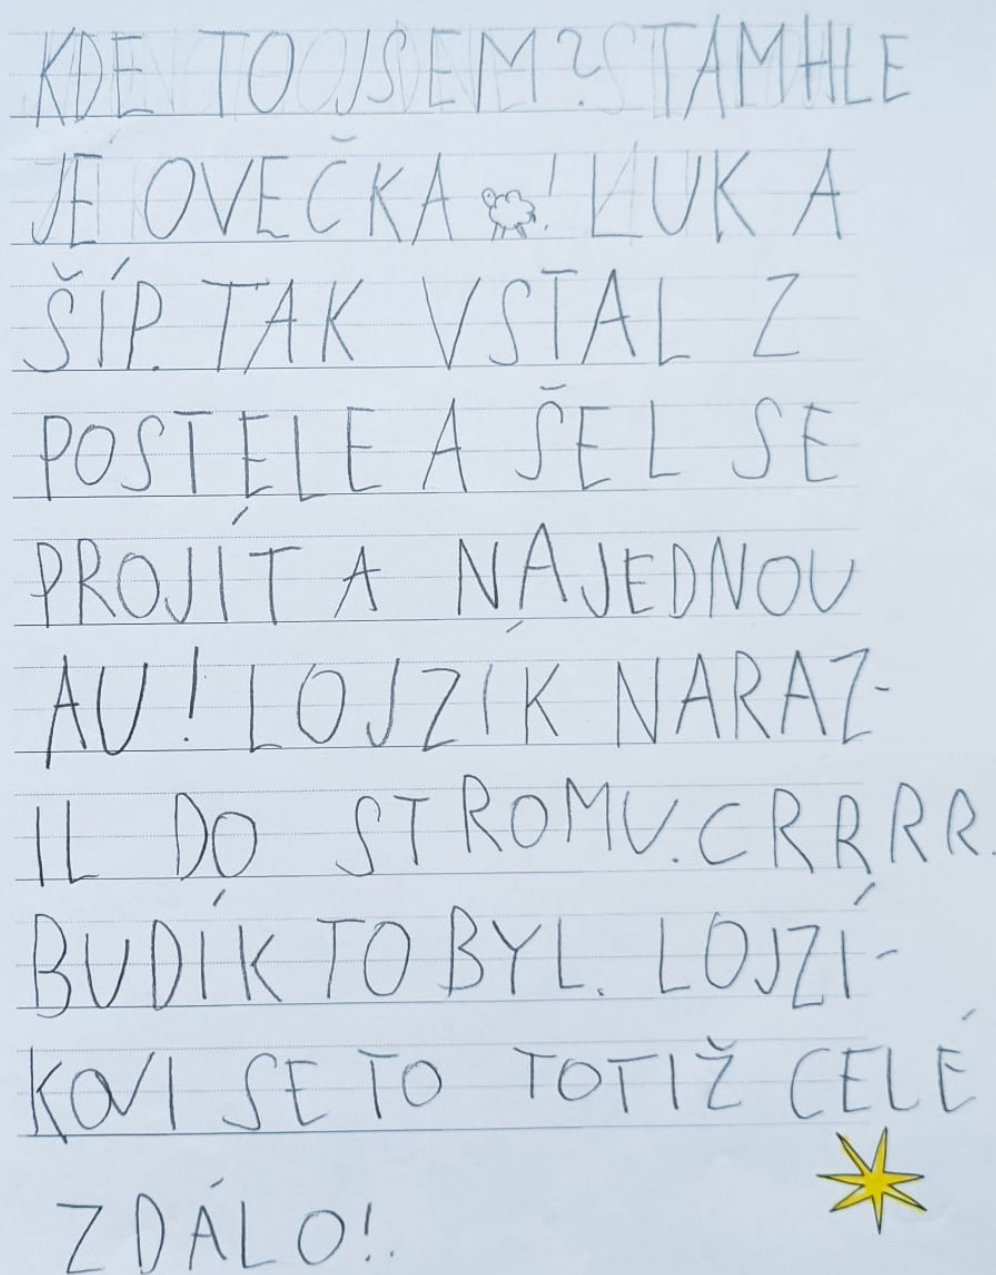 KDE TO JSEM? TAMHLE
JE OVEČKA! LUK A
ŠÍP. TAK VSTAL Z
POSTELE A ŠEL SE
PROJÍT A NAJEDNOU
AU! LOJZÍK NARAZ-
IL DO STROMU. CRRRR.
BUDÍK TO BYL. LOJZÍ-
KOVI SE TO TOTIŽ CELÉ
ZDÁLO!.